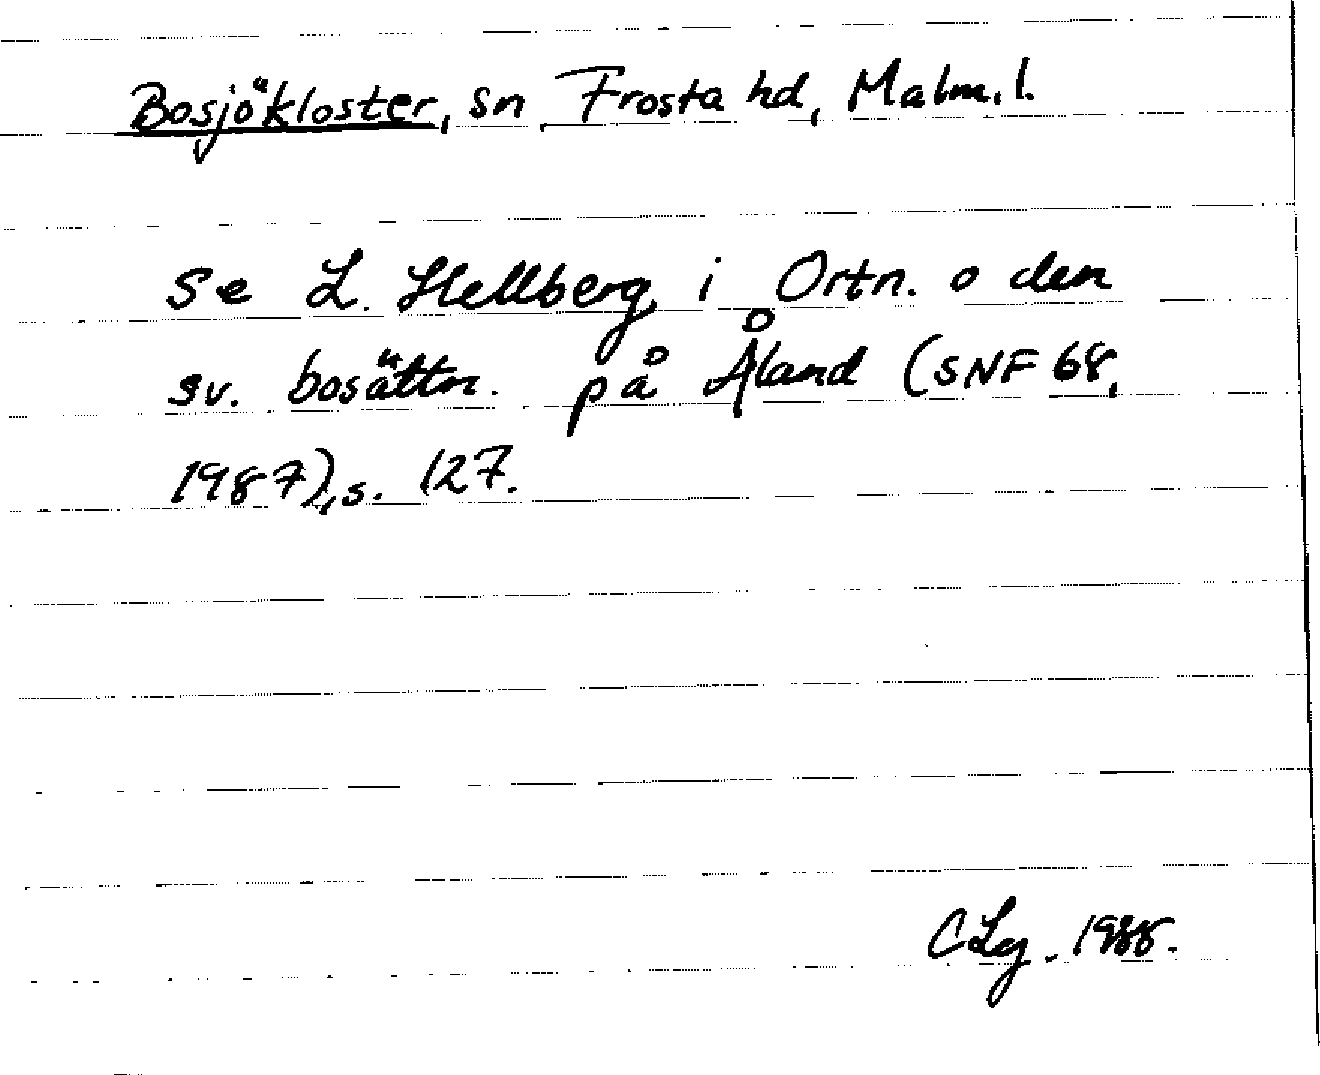 Bosjökloster, sn, Frosta hd, Malm. l.
Se L. Hellberg i Ortn. o den
sv. bosättn. på Åland (SNF 68,
1987), s. 127.
CLg. 1988.